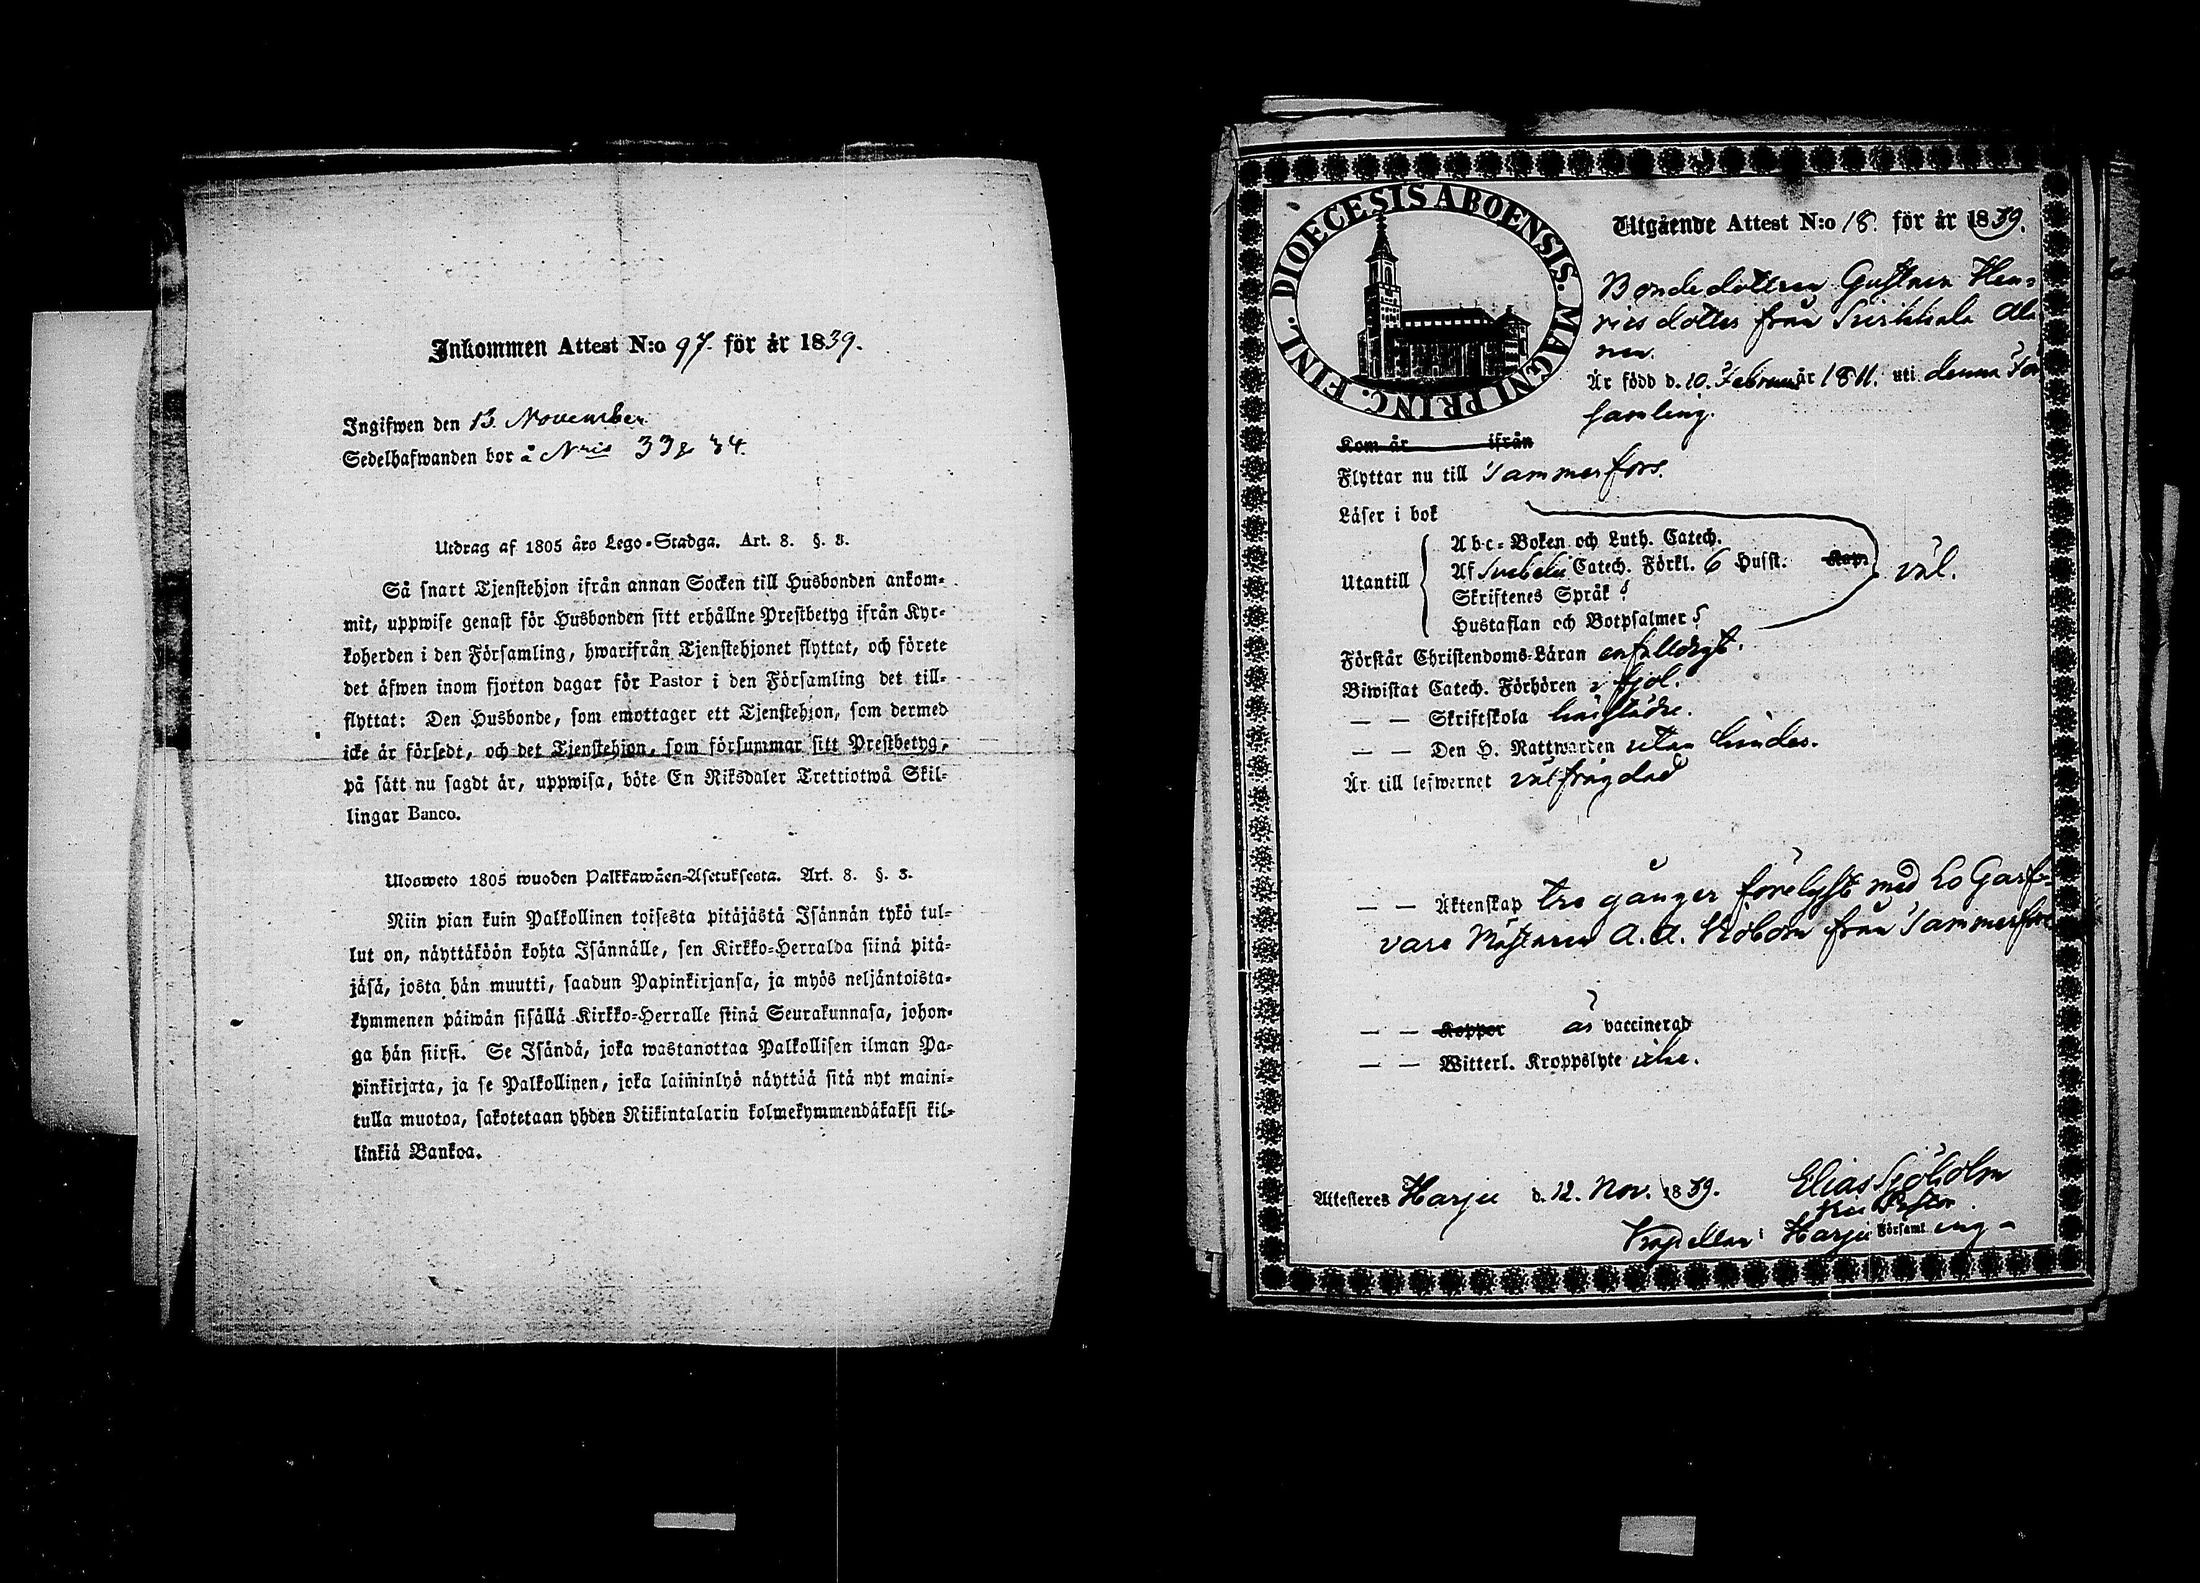 Inkommen Attest N:o 97. för år 1839.
Ingifwen den 13 November
Sedelhafwanden bor å Nris 33 & 34.
Utdrag af 1805 års Lego-Stadga. Art. 8. §. 3.
Så snart Tjenstehjon ifrån annan Socken till Husbonden ankom-
mit, uppwise genast för Husbonden sitt erhållne Prestbetyg ifrån Kyr-
koherden i den Församling, hwarifrån Tjenstehjonet flyttat, och förete
det äfwen inom fjorton dagar för Pastor i den Församling det till-
flyttat: Den Husbonde, som emottager ett Tjenstehjon, som dermed
icke är försedt, och det Tjenstehjon, som försummar sitt Prestbetyg,
på sätt nu sagdt är, uppwisa, böte En Riksdaler Trettiotwå Skil-
lingar Banco.
Ulosweto 1805 wuoden Palkkawäen-Asetuksesta. Art. 8. §. 3.
Niin pian kuin Palkollinen toisesta pitäjästä Isännän tykö tul-
lut on, näyttäköön kohta Isännälle, sen Kirkko-Herralda siinä pitä-
jäsä, josta hän muutti, saadun Papinkirjansa, ja myös neljäntoista-
kymmenen päiwän sisällä Kirkko-Herralle siinä Seurakunnasa, johon-
ga hän siirsi. Se Isändä, joka wastanottaa Palkollisen ilman Pa-
pinkirjata, ja se Palkollinen, joka laiminlyö näyttää sitä nyt maini-
tulla muotoa, sakotetaan yhden Riikintalarin kolmekymmendäkaksi kil-
linkiä Bankoa.
DIOECESIS ABOENSIS. MAGNI PRINC. FINL.
Utgående Attest N:o 18. för år 1839.
Bondedottren Gustava Hen-
ricsdotter från
Är född d. 10. Februari år 1811. uti denna För
samling.
Kom år ifrån
Flyttar nu till Tammerfors.
Läser i bok
Utantill
Abc-Boken och Luth. Catech.
Af Svebelii Catech. Förkl. 6 Husst. Kap.
Skriftenes Språk
Hustaflan och Botpsalmer
väl.
Förstår Christendoms-Läran enfalldigt.
Biwistat Catech. Förhören i fjol.
— — Skriftskola
— — Den H. Nattwarden utan hinder.
Är till lefwernet välfrägdad
— — Äktenskap tre gånger förelyst med LoGarf-
vare Mästaren A. A. från Tammerfors
— — Koppor är vaccinerad
— — Witterl. Kroppslyte icke.
Attesteras Harju d. 12. Nov. 1839. Elias Sjöholm
Vice Pastor
Kapellan i Harju Församling